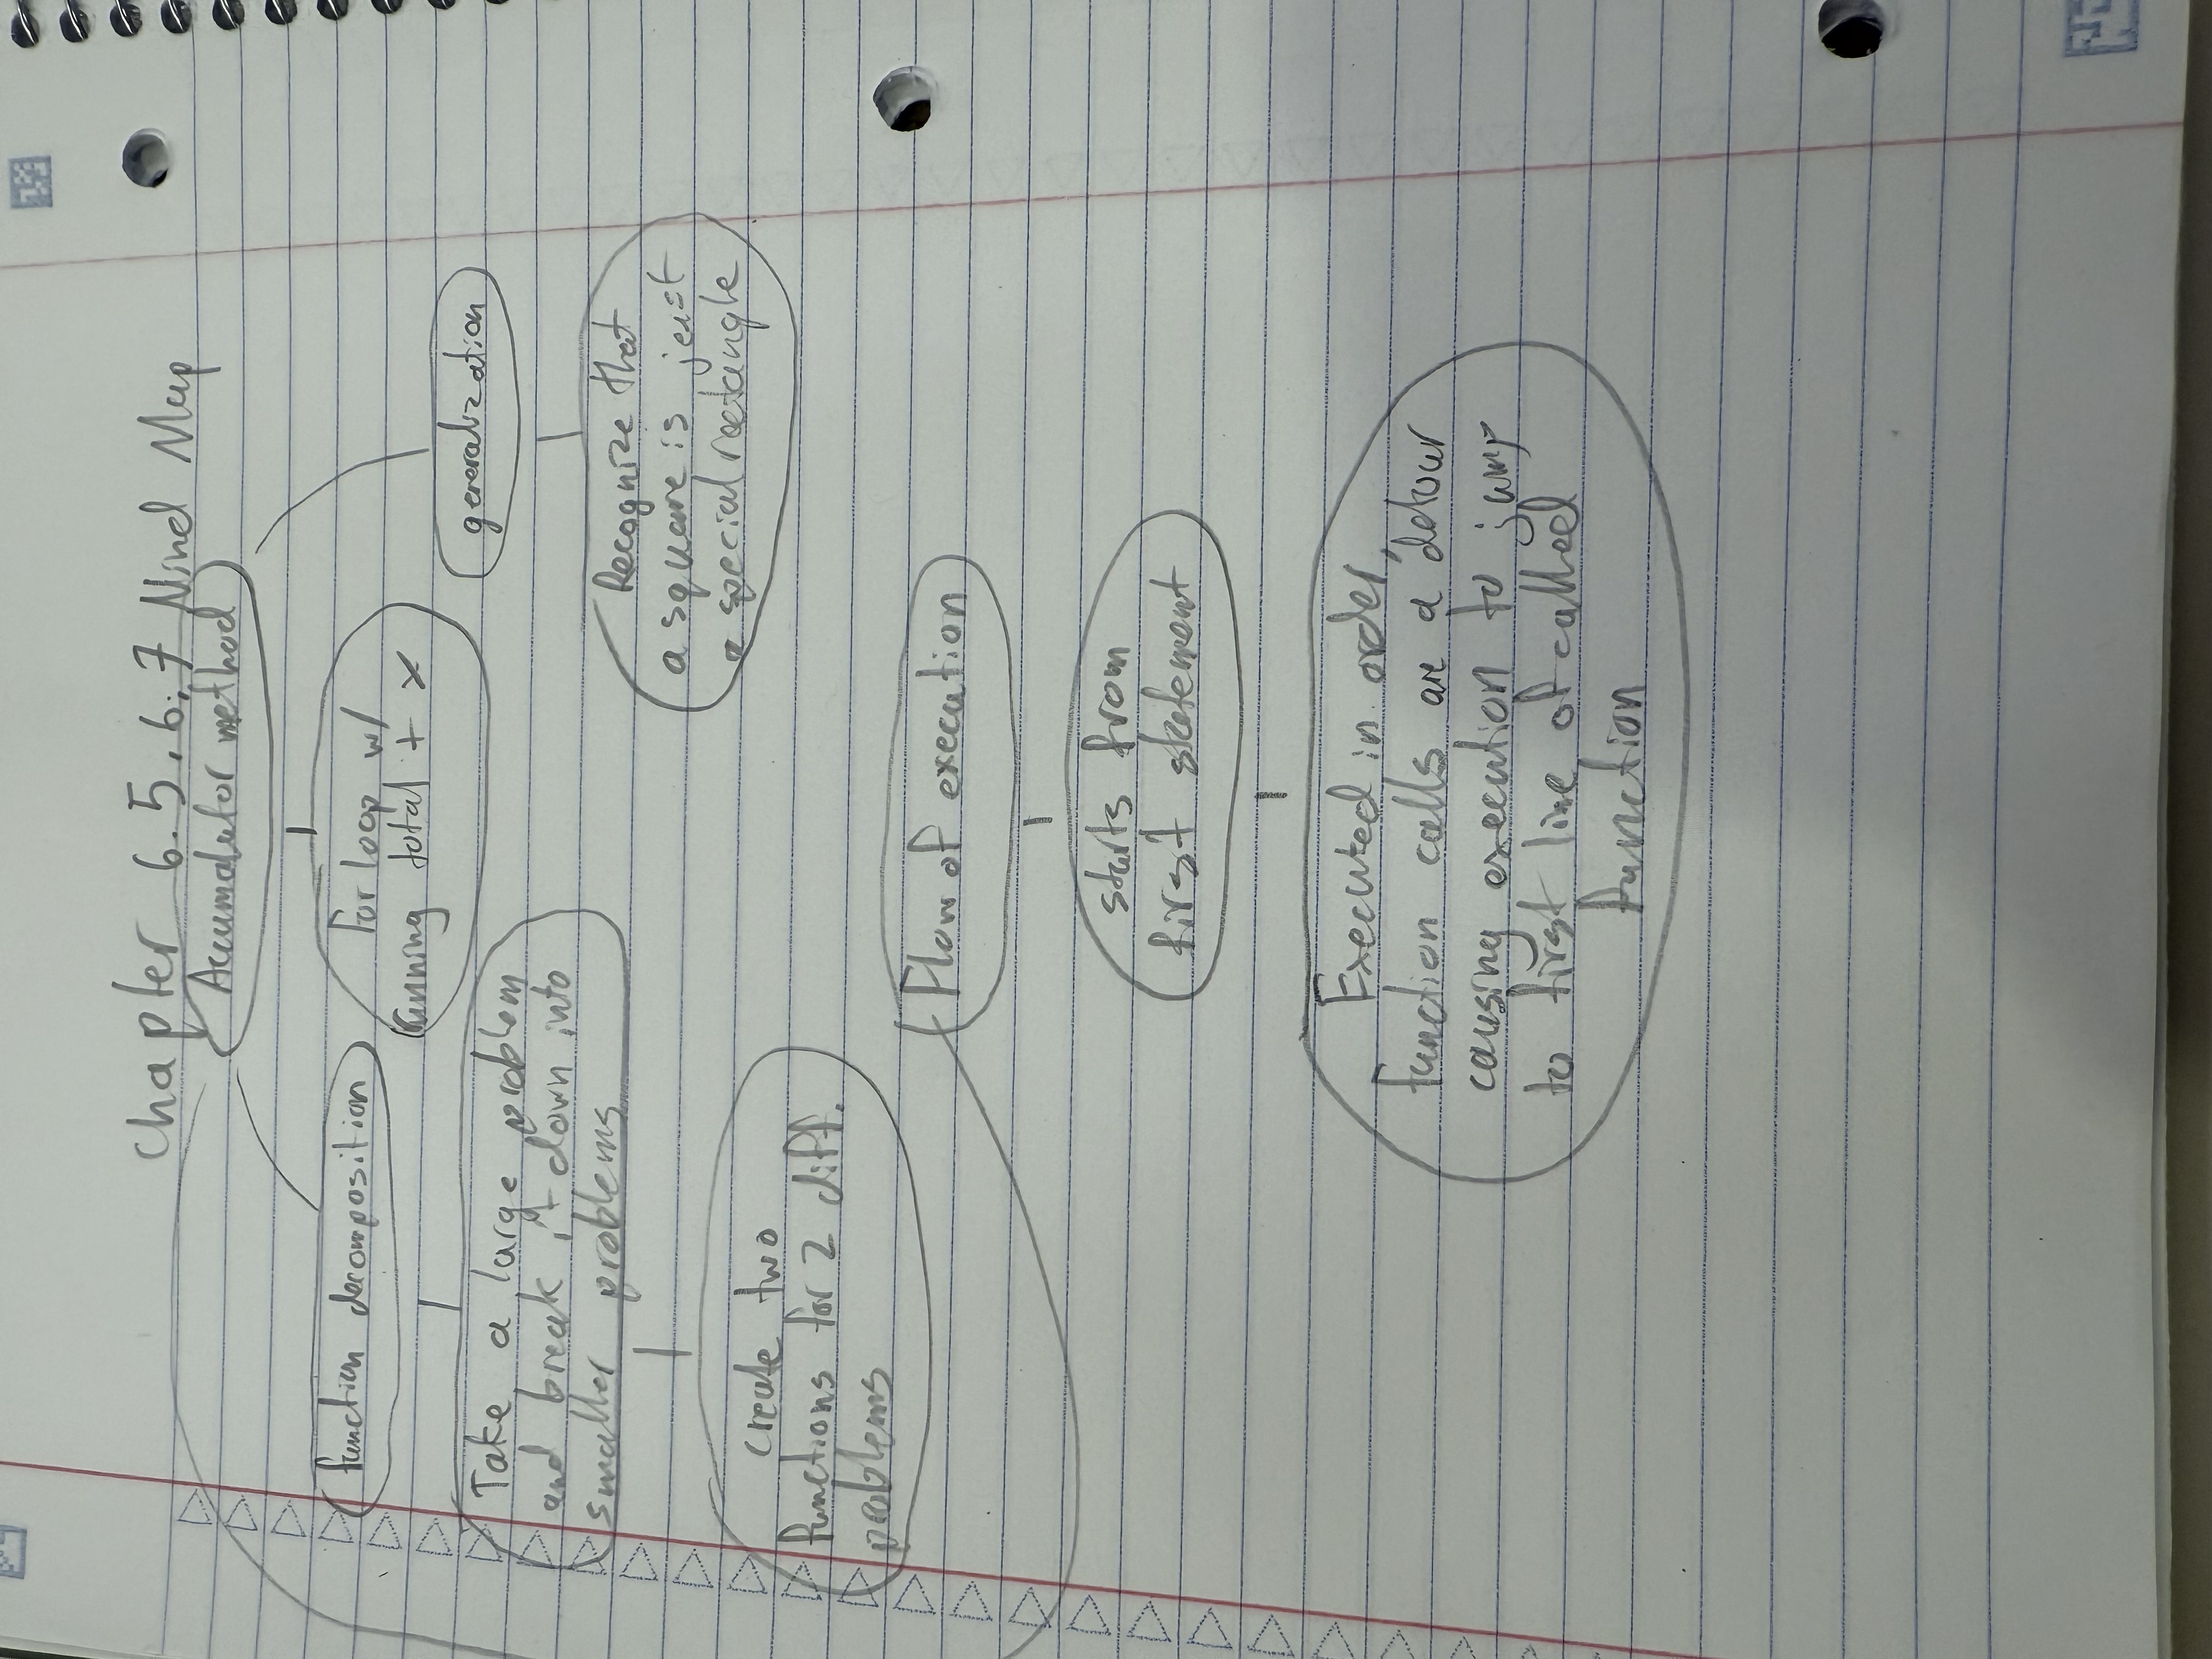 Chapter 6.5, 6.7 Mind Map
Accumulator method
function decomposition
For loop w/
running total + x
generalization
Take a large problem
and break it down into
smaller problems
Recognize that
a square is just
a special rectangle
create two
functions for 2 diff.
problems
Flow of execution
starts from
first statement
Executed in order,
function calls are a detour
causing execution to jump
to first line of called
function